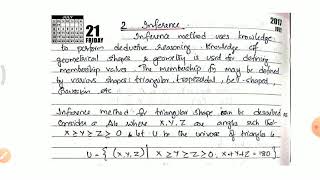 JULY
21
FRIDAY
2017
2 Inference
Inference method uses knowledge
to perform deductive reasoning. Knowledge of
geometrical shapes & geometry is used for defining
membership values. The membership fn may be defined
by various shapes: triangular, trapezoidal, bell-shaped,
Gaussian etc.
Inference method for triangular shape can be described
Consider a Δle where X,Y,Z are angles such that
X≥Y≥Z≥0 & let U be the universe of triangle is
U = { (X,Y,Z) | X≥Y≥Z≥0, X+Y+Z=180 }